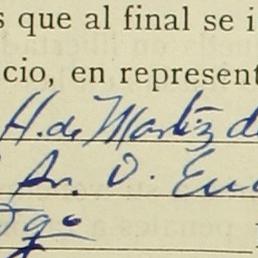 s que al final se i
cio, en represent
H. de Martiz d
Sn. D. Eu